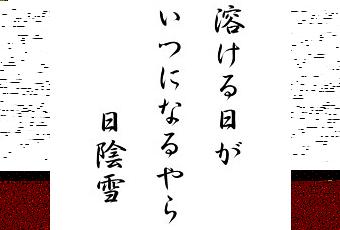 溶ける日が
いつになるやら
日陰雪